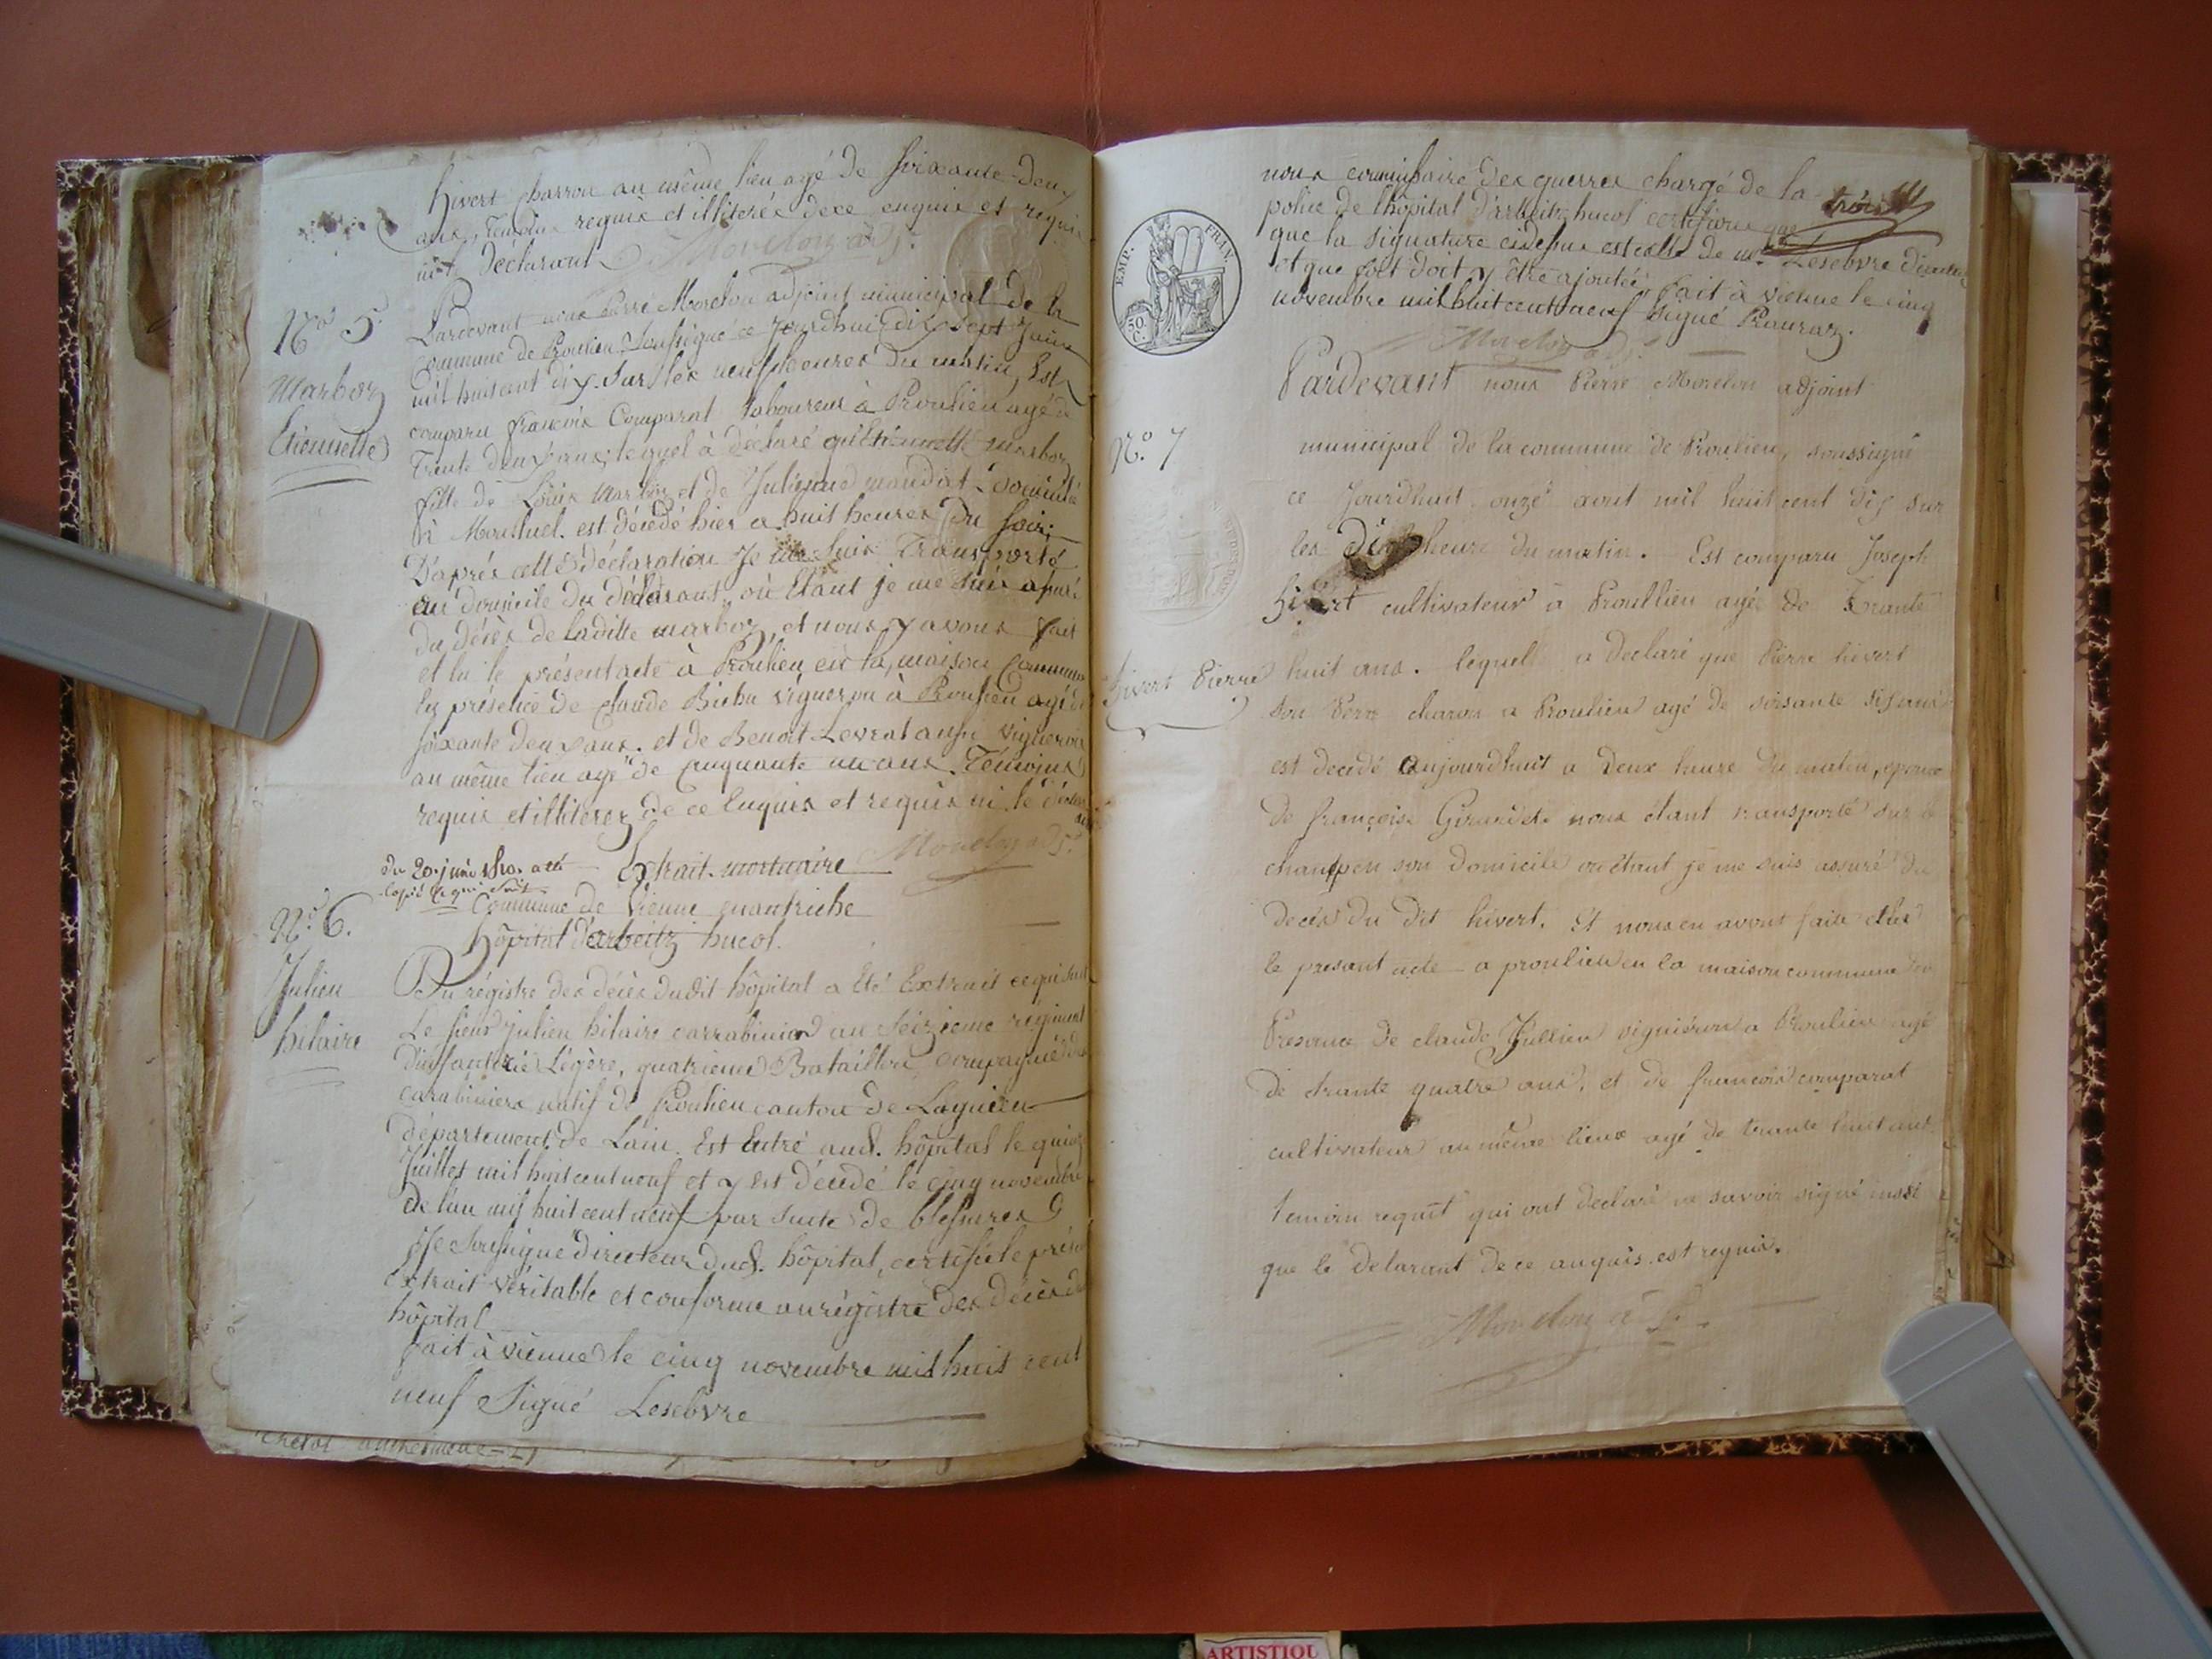 hivert charron au même lieu agé de soixante-deux
ans, témoins requis et illiterés de ce enquis et requis
ni le déclarant Morelon adj.
N.º 5.
Marboz
Etiennette
Pardevant nous Pierre Morelon adjoint municipal de la
Commune de Proulieu, soussigné ce jourdhui dix sept juin
mil huit cent dix. sur les neuf heures du matin, Est
comparu françois Comparat laboureur à Proulieu agé de
Trente deux ans, lequel à déclaré qu'Etiennette marboz
fille de Louis Marboz et de Julienne mandot domicilié
à Montluel. est décédé hier a huit heures du soir.
D'après cette déclaration Je me suis Transporté
au domicile du déclarant, où Etant je me suis assuré
du décès de laditte marboz, et nous y avons fait
et lu le présent acte à Proulieu en la maison Commune
En présence de claude vigneron à Proulieu agé de
soixante deux ans. et de Benoit Levrat aussi vigneron
au même lieu agé de cinquante un ans. Témoins
requis et illiterez de ce Enquis et requis ni le déclarant
Morelon adj.
du 20. juin 1810. a été
copié ce qui suit
Extrait-mortuaire
N.º 6.
Commune de Vienne en autriche
hôpital d'arbeitz hucol.
Julien
hilaire
Du régistre des décès dudit hôpital a Eté Extrait ce qui suit
Le sieur julien hilaire carrabinier au seizieme régiment
d'infanterie Légère, quatrieme Bataillon, Compagnie de
carabiniers natif de Proulieu canton de Lagnieu
département de Lain. Est Entré aud. hôpital le quinze
juillet mil huit cent neuf et y est décédé le cinq novembre
de l'an mil huit cent neuf par suite de blessures
Je soussigné Directeur dud. hôpital, certifie le présent
Extrait véritable et conforme au régistre des décès du
hôpital
fait à vienne le cinq novembre mil huit cent
neuf Signé Lesebvre
nous commissaire des guerres chargé de la
police de l'hôpital d'arbeitz hucol certifions que
que la signature cidessus est celle de mr. Lesebvre directeur
et que foit doit y être ajoutée, fait à vienne le cinq
novembre mil huit cent neuf signé Prauraz.
trois
EMP. FRAN.
50 C.
Morelon adj.
Pardevant nous Pierre Morelon adjoint
N.º 7
municipal de la commune de Proulieu, soussigné
ce jourdhuit onze aout mil huit cent dix sur
les dix heure du matin. Est comparu Joseph
hivert cultivateur a Proullieu agé de Trante
hivert Pierre
huit ans. lequel a declaré que Pierre hivert
son Pere charon a Proulieu agé de soisante dix ans
est decedé aujourdhuit a deux heure du matin, epoux
de françoise Girardet. nous étant transporté sur le
champ en son domicile ou étant je me suis assuré du
decès du dit hivert. Et nous en avont fait et lu
le presant acte a proulieu en la maison commune en
Presance de claude Jullien vignieron a Proulieu agé
de trante quatre ans, et de francois comparat
cultivateur au même lieux agé de trante huit ans
temoin requit qui ont declaré ne savoir signé insst
que le delarant de ce anquis est requis.
Morelon
ARTISTIQU